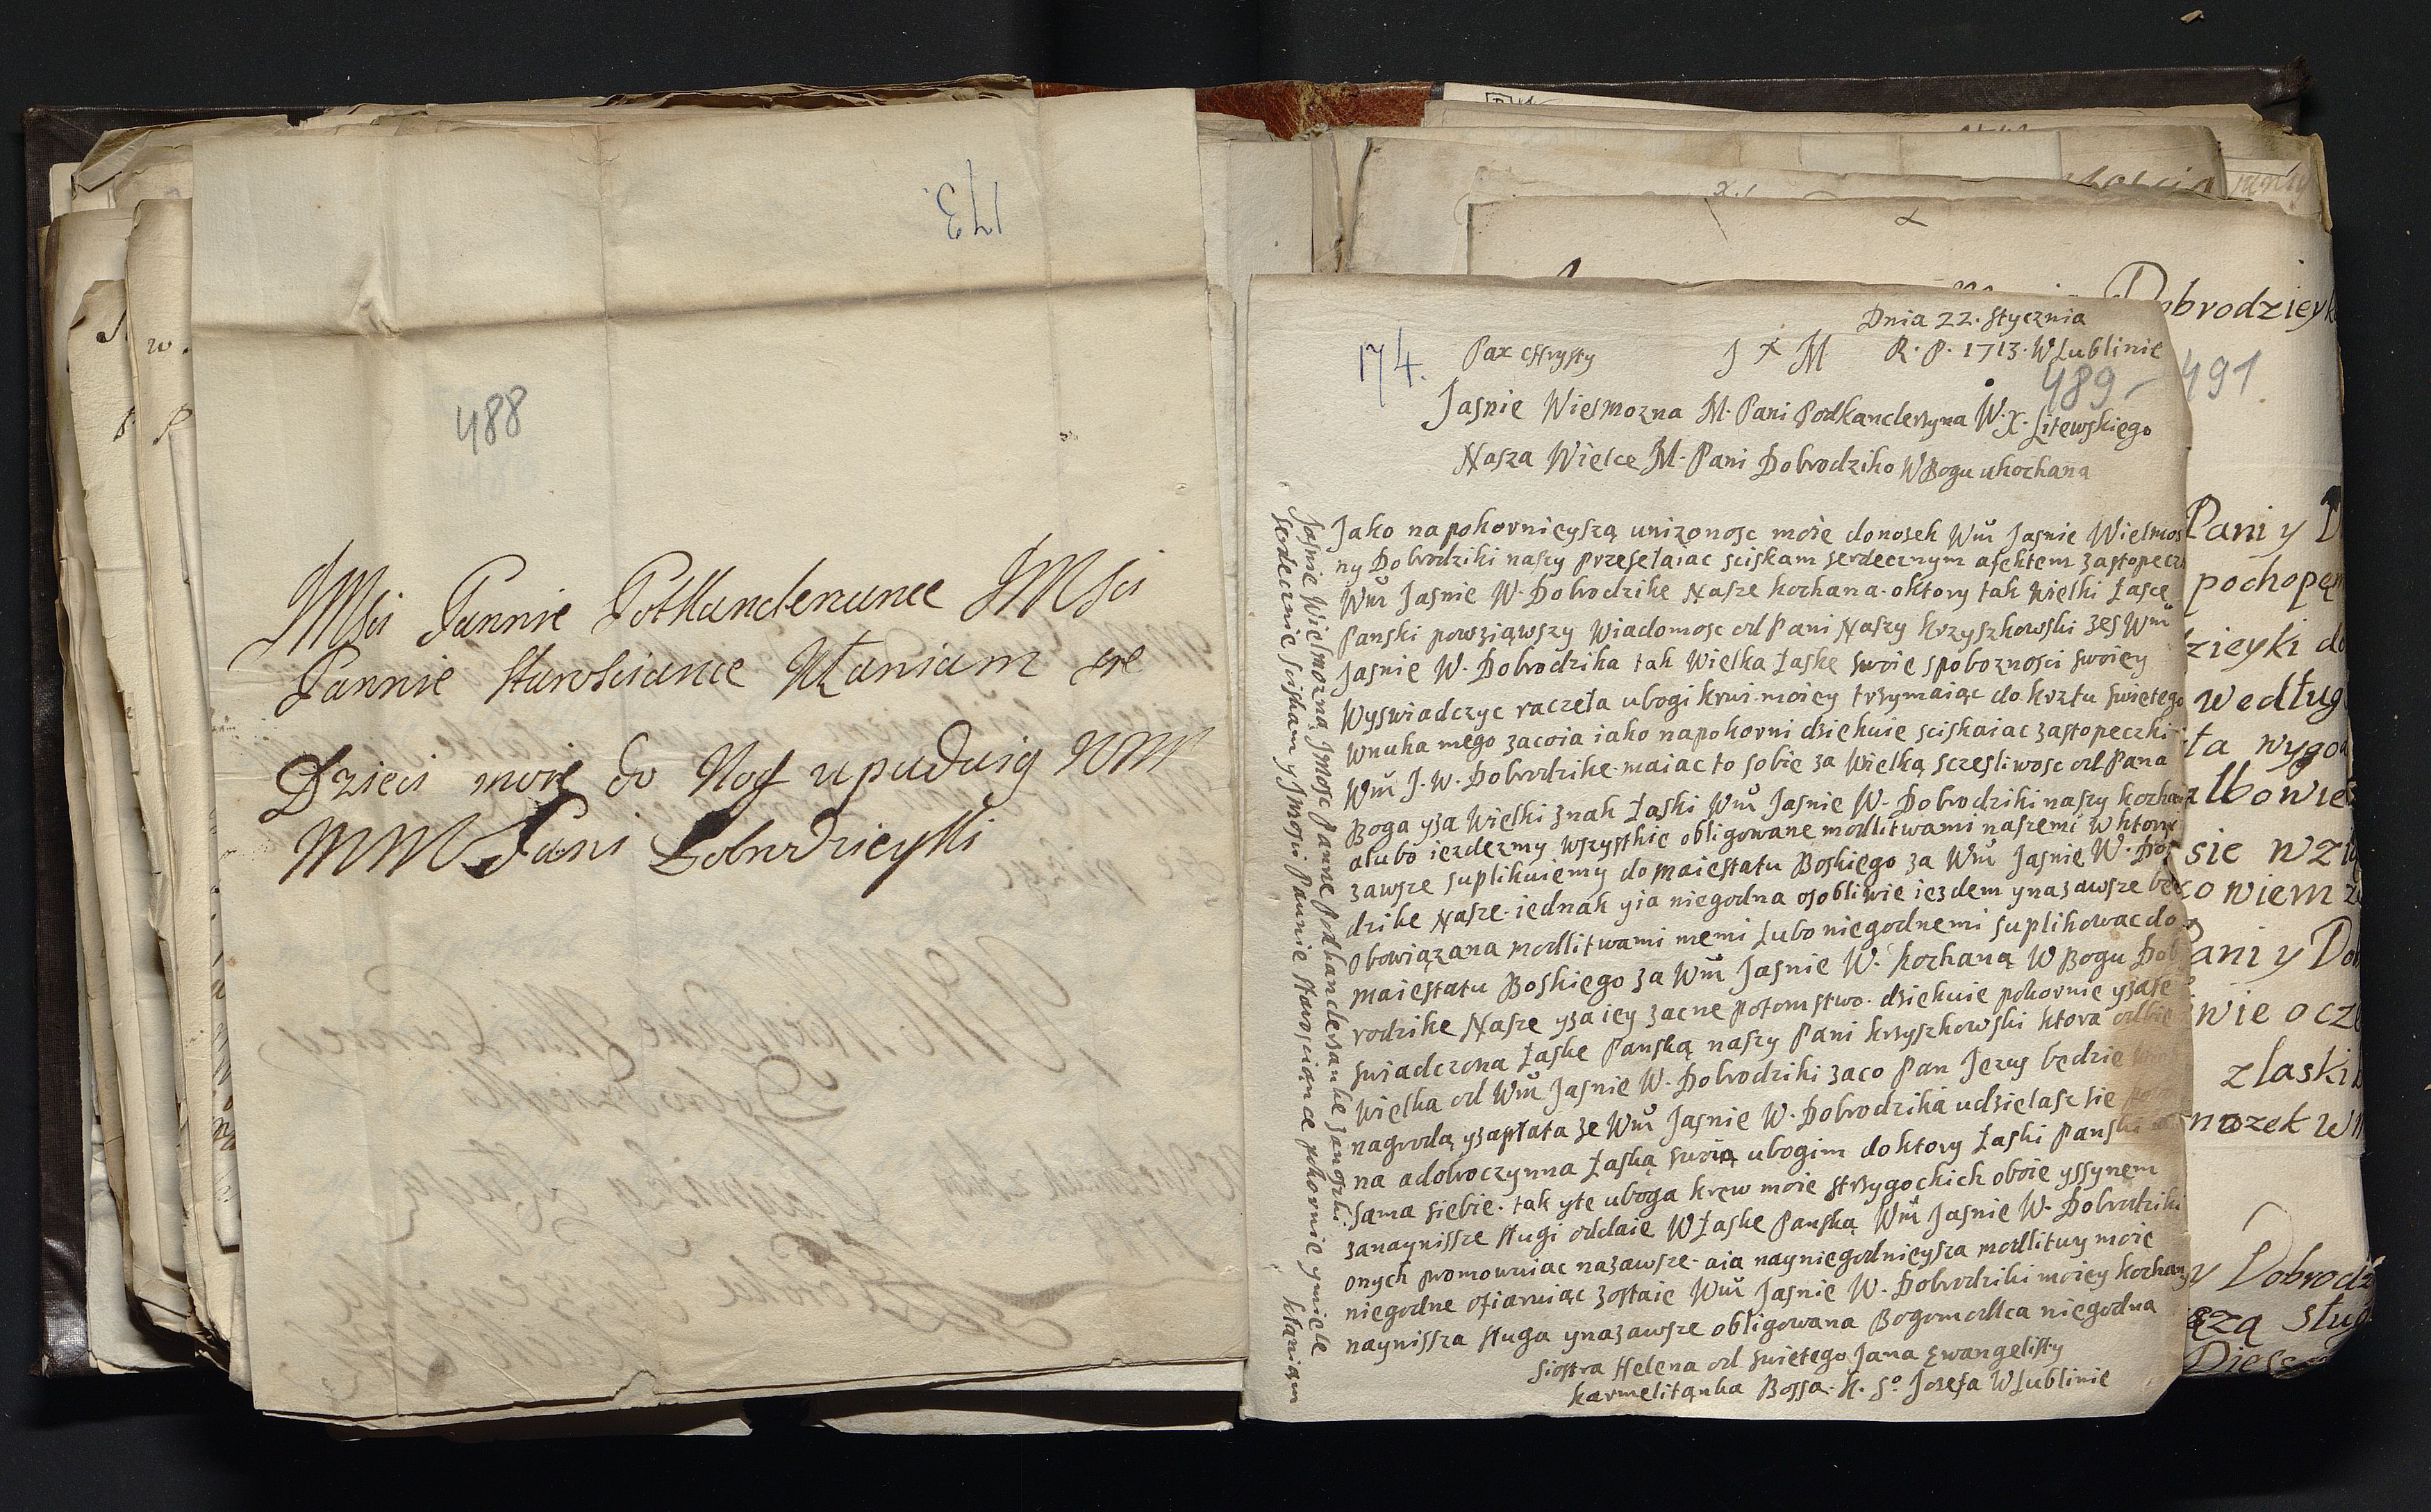 173.
488
JMści Pannie Potkanclerzance JMści
Pannie Starościance Kłaniam sie
Dzieci moie do Nog upadaią WM
MM Pani Dobrodzieyki
174.
Dnia 22. Stycznia
Pax Chrysty J + M R. P. 1713. W Lublinie
489 - 491.
Jasnie Wielmozna M. Pani Podkanclerzyna W. X. Litewskiego
Nasza Wielce M. Pani Dobrodziko W Bogu ukochana
Jako napokornieyszą unizonosc moie donosek Wm̃ Jasnie Wielmos
ny Dobrodziki naszy przesełaiac sciskam serdecznym afektem zastopecz
Wm̃ Jasnie W. Dobrodzike Nasze kochana. oktory tak wielki Łasce
Panski powziąwszy Wiadomosc od Pani Naszy krzyszkowski zes Wm̃
Jasnie W. Dobrodzika tak Wielka Łaske swoie spoboznosci swoiey
Wyswiadczyc raczeła ubogi krwi moiey trzymaiąc do krztu swietego
Wnuka mego zacoia iako napokorni dziekuie sciskaiac zastopeczki
Wm̃ J. W. Dobrodzike maiac to sobie za Wielką sczesliwosc od Pana
Boga yza Wielki znak Łaski Wm̃ Jasnie W. Dobrodziki naszy kochan
alubo iezdezmy wszystkie obligowane modlitwami naszemi w ktory
zawsze suplikuiemy do maiestatu Boskiego za Wm̃ Jasnie W. Dob
dzike Nasze. iednak yia niegodna osobliwie iezdem ynazawsze będ
Obowiązana modlitwami memi Lubo niegodnemi suplikowac do
maiestatu Boskiego za Wm̃ Jasnie W. kochaną W Bogu Dob
rodzike Nasze yza iey zacne potomstwo. dziekuie pokornie yzate
swiadczona Łaske Panską naszy Pani krzyszkowski ktora odbie
Wielka od Wm̃ Jasnie W. Dobrodziki zaco Pan Jezus będzie
nagrodą yzapłata ze Wm̃ Jasnie W. Dobrodzika udzielasz sie
na adobroczynna Łaską swoią ubogim do ktory Łaski Panski
sama siebie. tak yte uboga krew moie strzygockich oboie yssynem
zanaynissze sługi oddaie W Łaske Panską Wm̃ Jasnie W. Dobrodziki
onych promowuiac nazawsze. aia nayniegodnieysza modlitwy moie
niegodne ofiaruiąc zostaie Wm̃ Jasnie W. Dobrodziki moiey kochany
naynissza sługa ynazawsze obligowana Bogomodlca niegodna
Siostra Helena od swietego Jana Ewangelisty
karmelitąnka Bossa. K. S.º Jozefa W Lublinie
Jasnie Wielmozną Jmosc Panne podkanclerzanke zanozki
serdecznie sciskam y Jmosci Pannie starosciance pokornie ymiele kłaniąm
obrodzieyk
Pani y D
pochopęn
zieyki do
według
ta wygo
albowie
sie wzią
kowiem z
Pani y Do
wie ocze
z laski
nozek W
y Dobrodz
szą sług